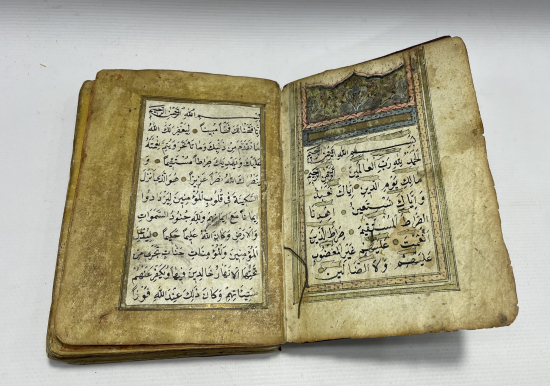 بِسْمِ اللهِ الرَّحْمٰنِ الرَّحِيمِ
اَلْحَمْدُ لِلّٰهِ رَبِّ الْعَالَمِينَ الرَّحْمٰنِ الرَّحِيمِ
مَالِكِ يَوْمِ الدِّينِ اِيَّاكَ نَعْبُدُ
وَاِيَّاكَ نَسْتَعِينُ اِهْدِنَا
الصِّرَاطَ الْمُسْتَقِيمَ صِرَاطَ الَّذِينَ
اَنْعَمْتَ عَلَيْهِمْ غَيْرِ الْمَغْضُوبِ
عَلَيْهِمْ وَلَا الضَّالِّينَ
بِسْمِ اللهِ الرَّحْمٰنِ الرَّحِيمِ
اِنَّا فَتَحْنَا لَكَ فَتْحًا مُبِينًا لِيَغْفِرَ لَكَ اللهُ
مَا تَقَدَّمَ مِنْ ذَنْبِكَ وَمَا تَأَخَّرَ وَيُتِمَّ نِعْمَتَهُ
عَلَيْكَ وَيَهْدِيَكَ صِرَاطًا مُسْتَقِيمًا وَ
يَنْصُرَكَ اللهُ نَصْرًا عَزِيزًا هُوَ الَّذِي اَنْزَلَ
السَّكِينَةَ فِي قُلُوبِ الْمُؤْمِنِينَ لِيَزْدَادُوا
اِيمَانًا مَعَ اِيمَانِهِمْ وَلِلّٰهِ جُنُودُ السَّمٰوَاتِ
وَالْاَرْضِ وَكَانَ اللهُ عَلِيمًا حَكِيمًا لِيُدْخِلَ
الْمُؤْمِنِينَ وَالْمُؤْمِنَاتِ جَنَّاتٍ تَجْرِي مِنْ
تَحْتِهَا الْاَنْهَارُ خَالِدِينَ فِيهَا وَيُكَفِّرَ عَنْهُمْ
سَيِّئَاتِهِمْ وَكَانَ ذٰلِكَ عِنْدَ اللهِ فَوْزًا